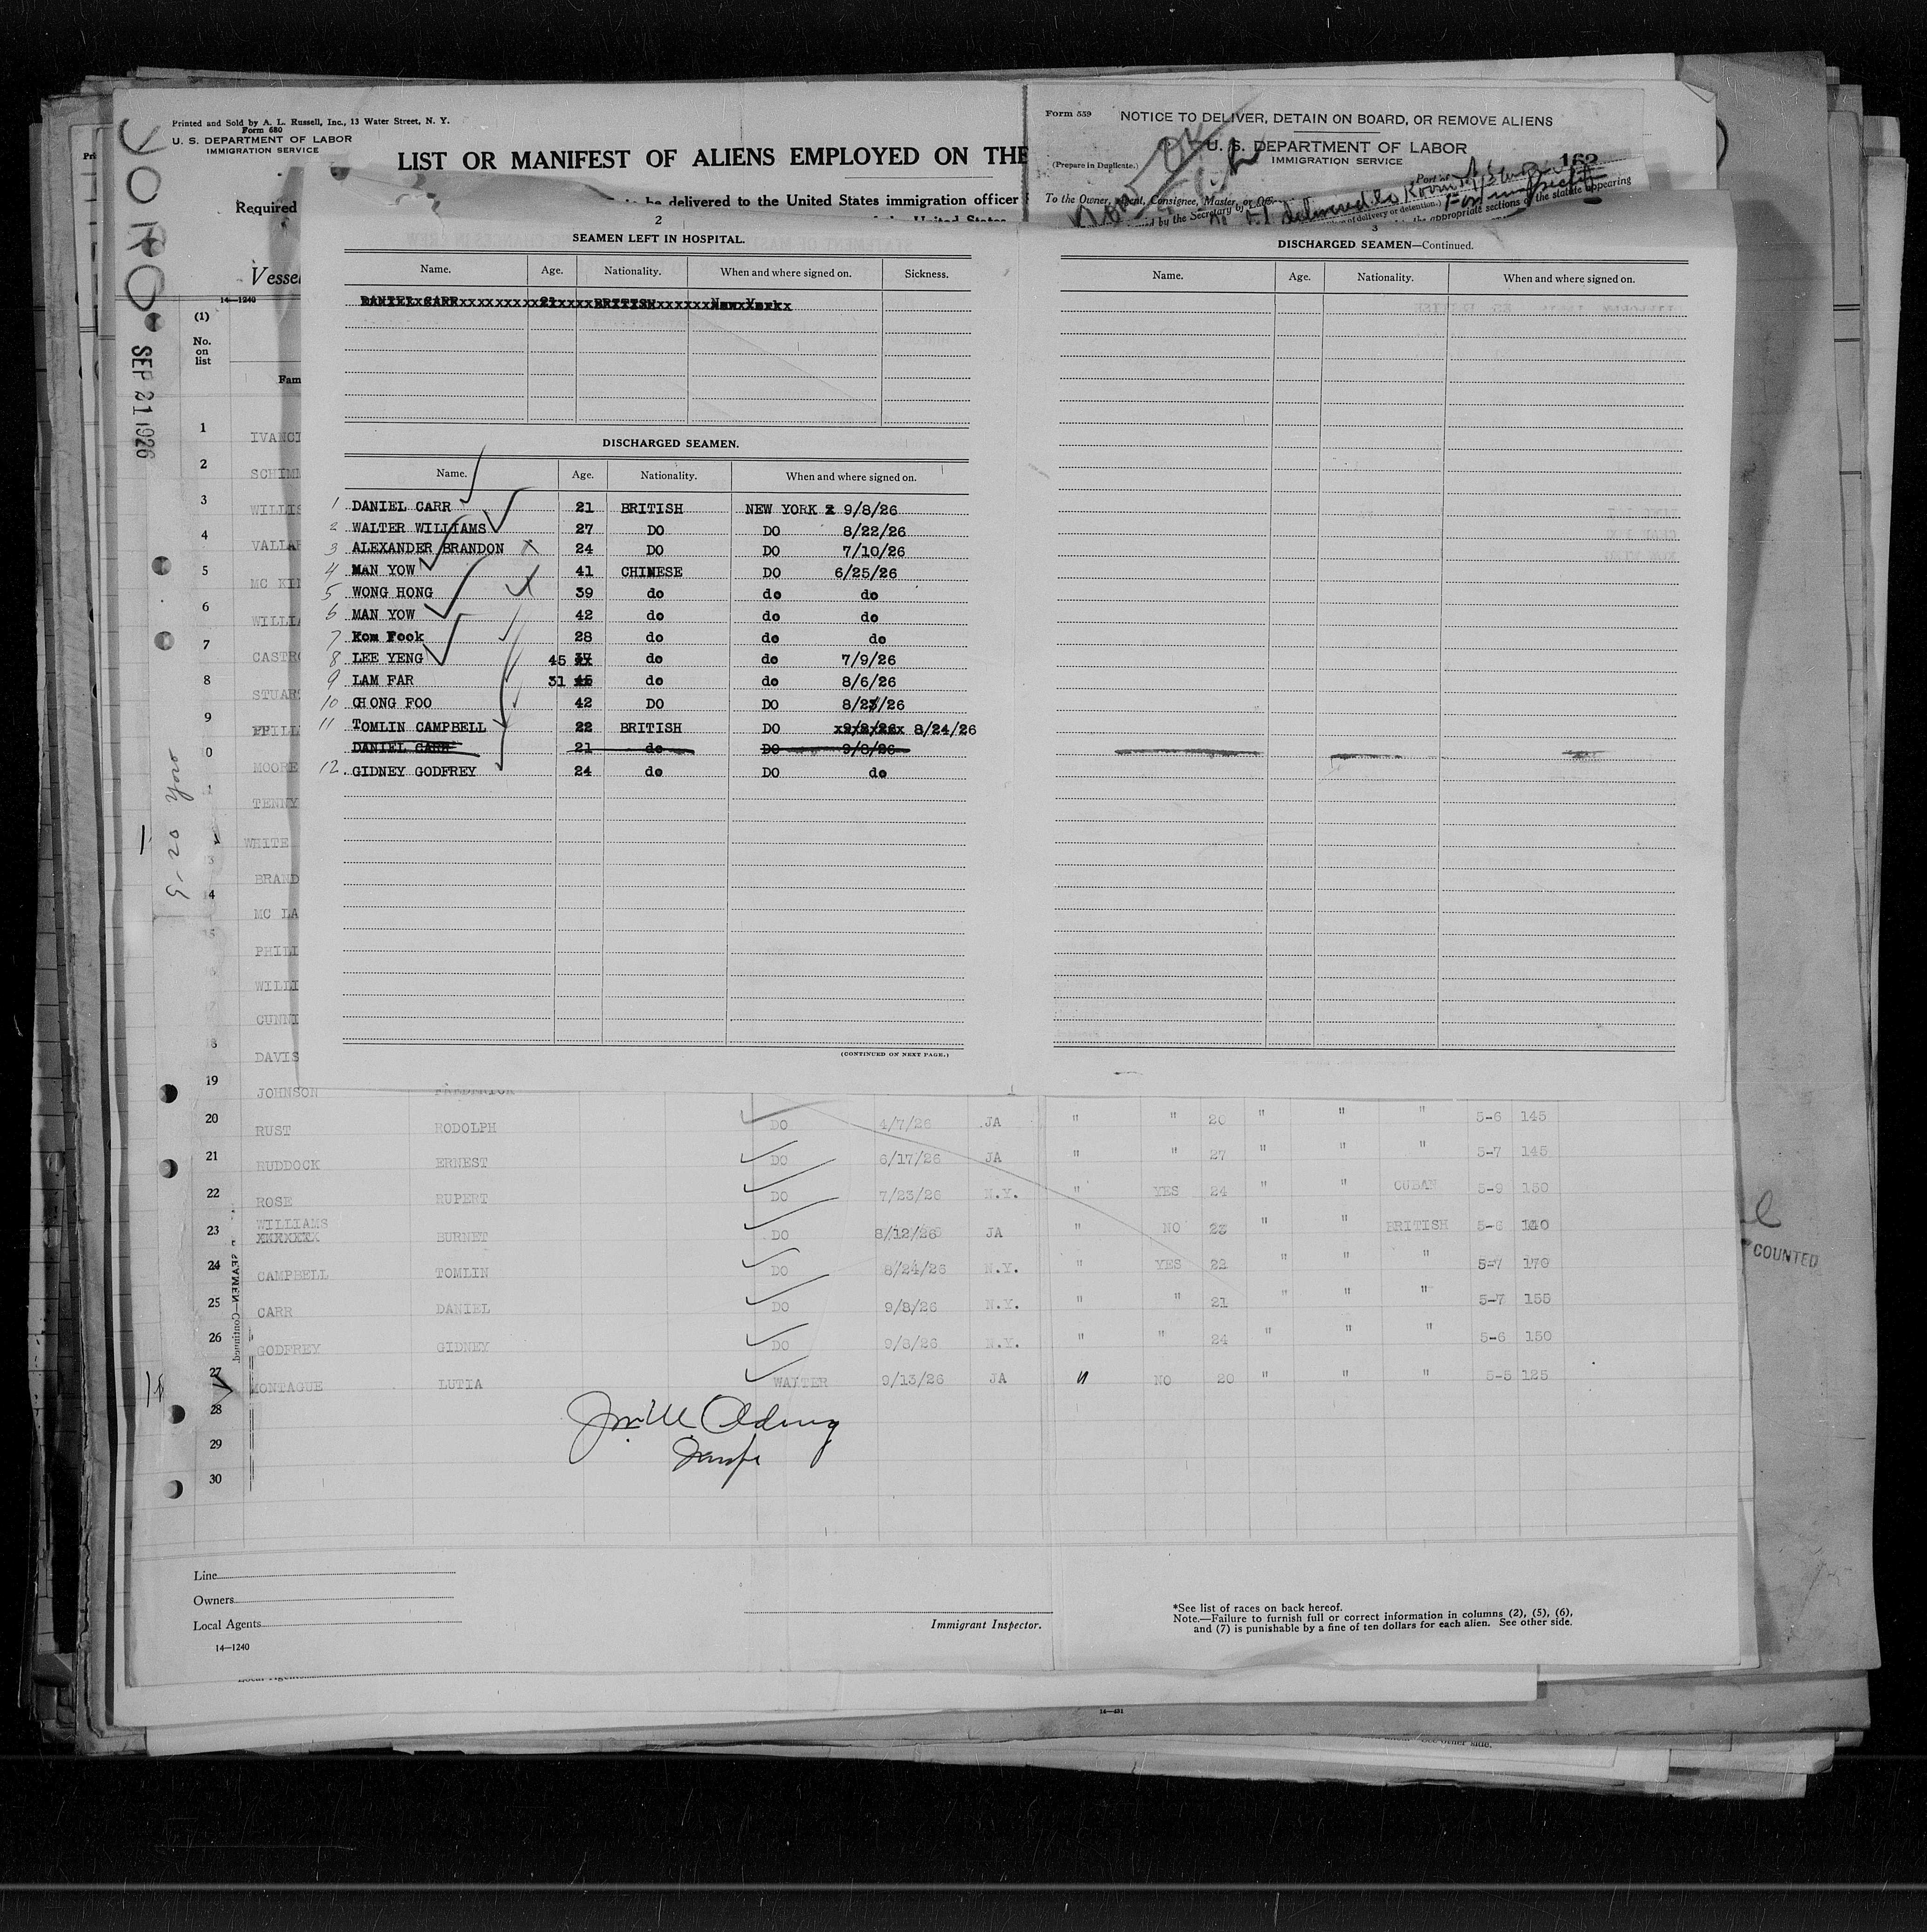 Printed and Sold by A. L. Russell, Inc., 13 Water Street, N. Y.
Form 680
U. S. DEPARTMENT OF LABOR
IMMIGRATION SERVICE
LIST OR MANIFEST OF ALIENS EMPLOYED ON THE
Required
be delivered to the United States immigration officer
Vessel
14—1240
YORO
SEP 21 1926
9-20 Yoro
Form 559
NOTICE TO DELIVER, DETAIN ON BOARD, OR REMOVE ALIENS
U. S. DEPARTMENT OF LABOR
IMMIGRATION SERVICE
(Prepare in Duplicate.)
162
To the Owner, Agent, Consignee, Master, or
delivered to Room
For inspection
the appropriate sections of the statute appearing
2
SEAMEN LEFT IN HOSPITAL.
Name. Age. Nationality. When and where signed on. Sickness.
DANIEL CARR 21 BRITISH New York
DISCHARGED SEAMEN.
Name. Age. Nationality. When and where signed on.
1 DANIEL CARR 21 BRITISH NEW YORK 9/8/26
2 WALTER WILLIAMS 27 DO DO 8/22/26
3 ALEXANDER BRANDON 24 DO DO 7/10/26
4 MAN YOW 41 CHINESE DO 6/25/26
5 WONG HONG 39 do do do
6 MAN YOW 42 do do do
7 Kom Fook 28 do do do
8 LEE YENG 45 37 do do 7/9/26
9 LAM FAR 31 45 do do 8/6/26
10 CHONG FOO 42 DO DO 8/23/26
11 TOMLIN CAMPBELL 22 BRITISH DO 9/8/26 8/24/26
DANIEL CARR 21 do DO 9/8/26
12 GIDNEY GODFREY 24 do DO do
(CONTINUED ON NEXT PAGE.)
3
DISCHARGED SEAMEN—Continued.
Name. Age. Nationality. When and where signed on.
(1)
No.
on
list
Fam
1 IVANCI
2 SCHIMM
3 WILLIS
4 VALLAR
5 MC KI
6 WILLIA
7 CASTRO
8 STUAR
9 PHILL
MOORE
TENNY
WHITE
BRAND
MC LA
PHILI
WILLI
CUNNI
DAVIS
19 JOHNSON FREDERICK
20 RUST RODOLPH DO 4/7/26 JA " " 26 " " " 5-6 145
21 RUDDOCK ERNEST DO 6/17/26 JA " " 27 " " " 5-7 145
22 ROSE RUPERT DO 7/23/26 N.Y. " YES 24 " " CUBAN 5-9 150
23 WILLIAMS BURNET DO 8/12/26 JA " NO 23 " " BRITISH 5-6 140
24 CAMPBELL TOMLIN DO 8/24/26 N.Y. " YES 22 " " " 5-7 170
25 CARR DANIEL DO 9/8/26 N.Y. " " 21 " " " 5-7 155
26 GODFREY GIDNEY DO 9/8/26 N.Y. " " 24 " " " 5-6 150
27 MONTAGUE LUTIA WAITER 9/13/26 JA " NO 20 " " " 5-5 125
28
29
30
SEAMEN—Continued.
COUNTED
Line
Owners
Local Agents
14—1240
Immigrant Inspector.
*See list of races on back hereof.
Note.—Failure to furnish full or correct information in columns (2), (5), (6),
and (7) is punishable by a fine of ten dollars for each alien. See other side.
14—431